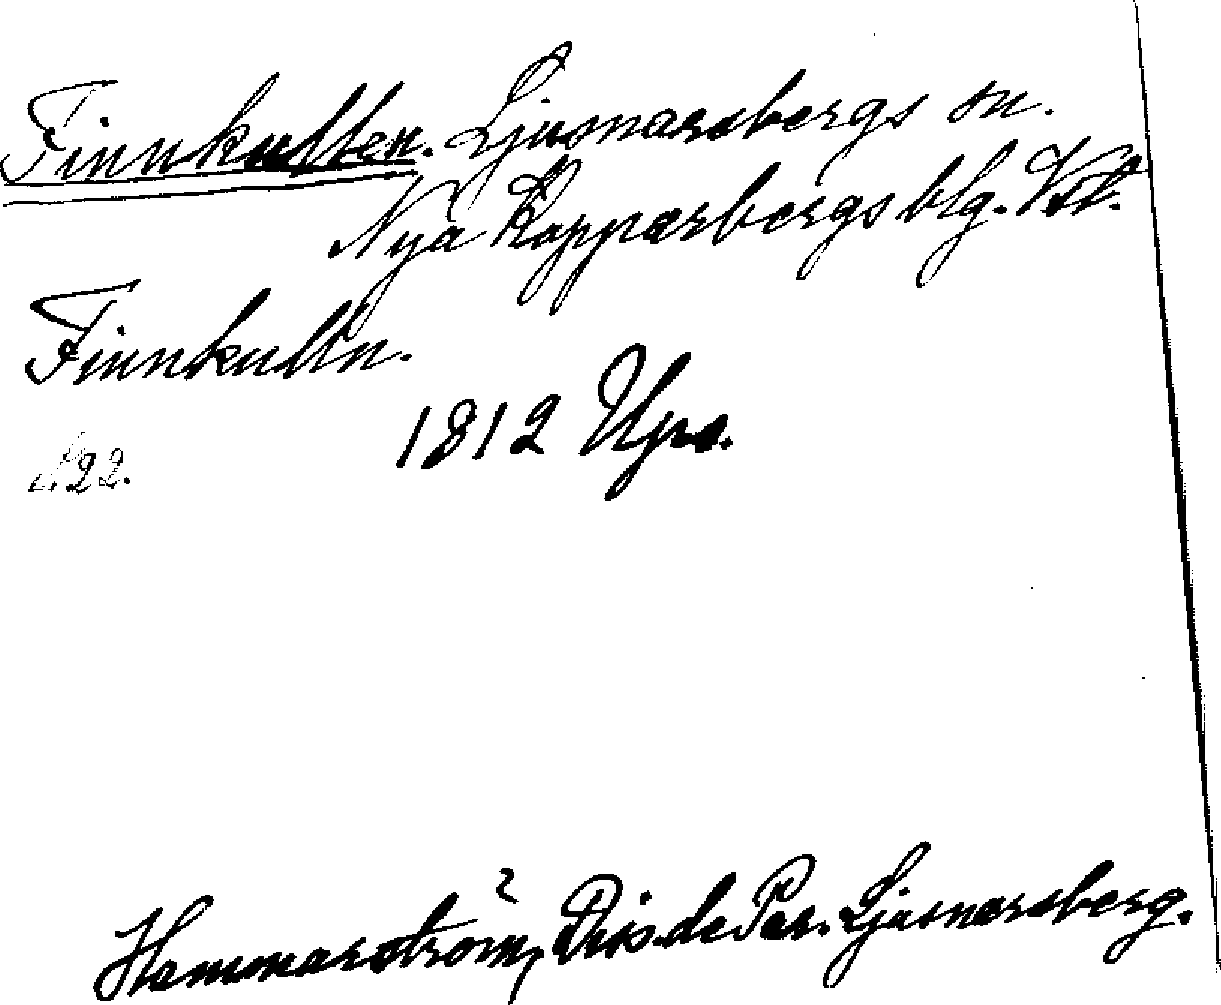 Finnkullen. Ljusnarsbergs sn.
Nya Kopparbergs blg. Vstm.
Finnkulln.
1812 Ups.
s. 22.
Hammarström, Dis. de Par. Ljusnarsberg.